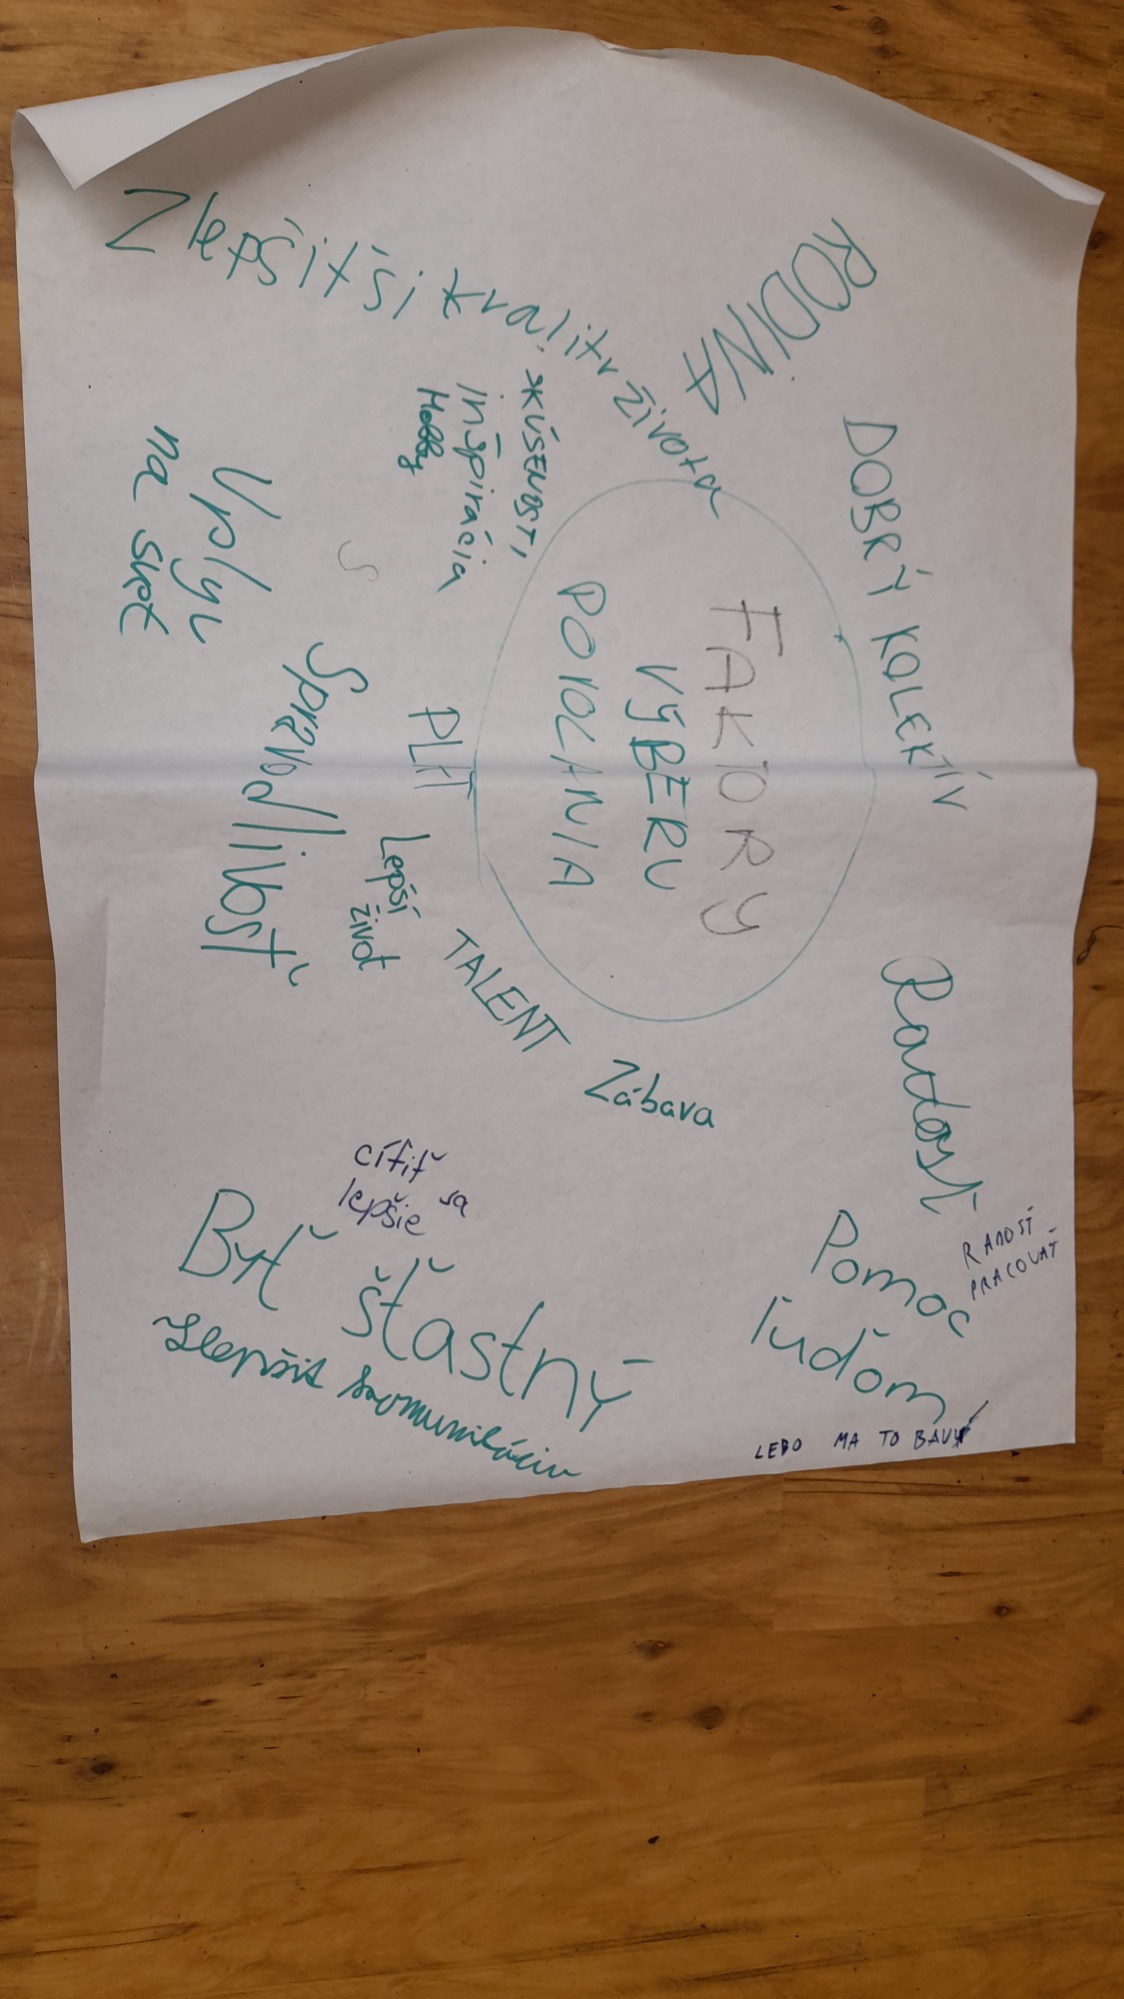 FAKTORY
VÝBERU
POVOLANIA
RODINA
DOBRÝ KOLEKTÍV
Zlepšiť si kvalitu života
SKÚSENOSTI,
inšpirácia
Hobby
Vplyv
na svet
Spravodlivosť
PLAT
Lepší
život
TALENT
Zábava
Radosť
RADOSŤ
PRACOVAŤ
Pomoc
ľuďom
LEBO MA TO BAVÍ
cítiť sa
lepšie
Byť šťastný
Zlepšiť komunikáciu